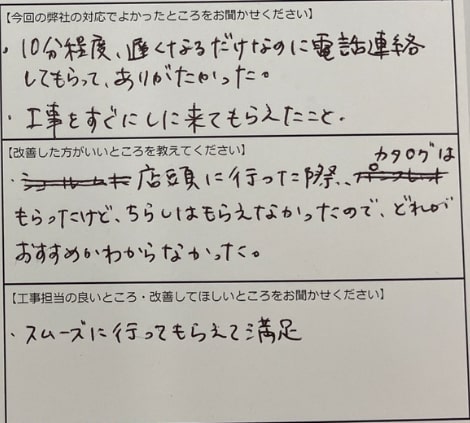 【今回の弊社の対応でよかったところをお聞かせください】
・10分程度、遅くなるだけなのに電話連絡
してもらって、ありがたかった。
・工事をすぐにしに来てもらえたこと.
【改善した方がいいところを教えてください】
カタログは
・ショールームに 店頭に行った際、パンフレット
もらったけど、ちらしはもらえなかったので、どれが
おすすめかわからなかった。
【工事担当の良いところ・改善してほしいところをお聞かせください】
・スムーズに行ってもらえて満足